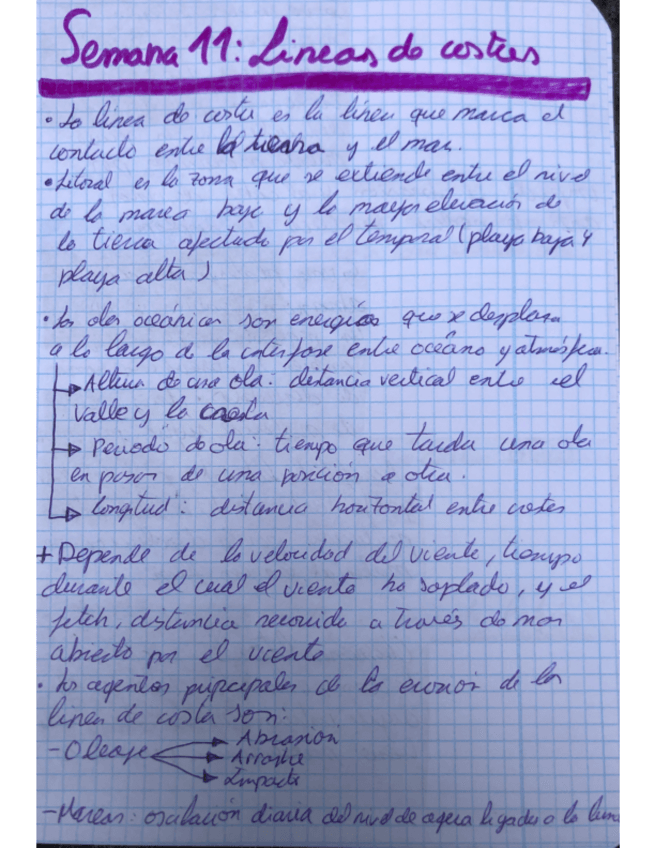 Semana 11: Lineas de costas
• La linea de costa es la linea que marca el
contacto entre la tierra y el mar.
• Litoral es la zona que se extiende entre el nivel
de la marea baja y la mayor elevación de
la tierra afectada por el temporal (playa baja y
playa alta)
• Las olas oceánicas son energías que se desplaza
a lo largo de la interfase entre océano y atmósfera.
Altura de una ola: distancia vertical entre el
valle y la cresta
Periodo de ola: tiempo que tarda una ola
en pasar de una posición a otra.
Longitud: distancia horizontal entre
+ Depende de la velocidad del viento, tiempo
durante el cual el viento ha soplado, y el
fetch, distancia recorrida a través de mar
abierto por el viento
• Los agentes principales de la erosión de la
linea de costa son:
- Oleaje
Abrasión
Arrastre
Impacto
- Mareas: oscilación diaria del nivel de agua ligada a la luna